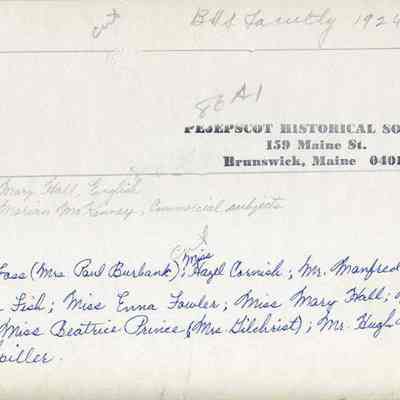 cut
BHS Faculty 1924
86 A1
PEJEPSCOT HISTORICAL SO
159 Maine St.
Brunswick, Maine 0401
Mary Hall, English
Marian McKenney, Commercial subjects
Foss (Mrs Paul Burbank); Miss Hazel Cornish; Mr. Manfred
Fish; Miss Enna Fowler; Miss Mary Hall;
Miss Beatrice Prince (Mrs. Gilchrist); Mr. Hugh
piller.